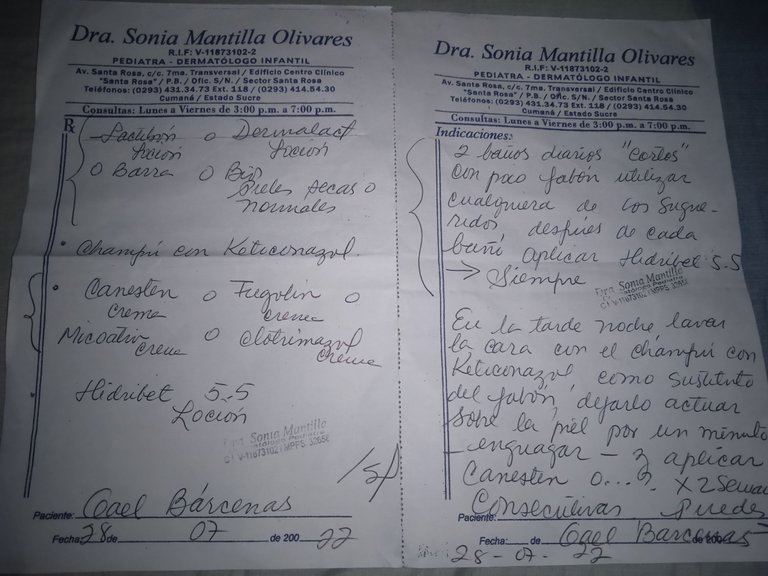 Dra. Sonia Mantilla Olivares
R.I.F: V-11873102-2
PEDIATRA - DERMATÓLOGO INFANTIL
Av. Santa Rosa, c/c. 7ma. Transversal / Edificio Centro Clínico
"Santa Rosa" / P.B. / Ofic. S/N / Sector Santa Rosa
Teléfonos: (0293) 431.34.73 Ext. 118 / (0293) 414.54.30
Cumaná / Estado Sucre
Consultas: Lunes a Viernes de 3:00 p.m. a 7:00 p.m.
Rx
o Dermalact
loción loción
o Barra o Bio
Pieles secas o
normales
Champú con Keticonazol.
Canesten o Fugolin o
crema creme
creme o Clotrimazol
creme
Hidribet 5.5
Loción
Dra. Sonia Mantilla
CI V-11873102 / MPPS 32658
Paciente: Gael Bárcenas
Fecha: 28 de 07 de 200 22
Dra. Sonia Mantilla Olivares
R.I.F: V-11873102-2
PEDIATRA - DERMATÓLOGO INFANTIL
Av. Santa Rosa, c/c. 7ma. Transversal / Edificio Centro Clínico
"Santa Rosa" / P.B. / Ofic. S/N / Sector Santa Rosa
Teléfonos: (0293) 431.34.73 Ext. 118 / (0293) 414.54.30
Cumaná / Estado Sucre
Consultas: Lunes a Viernes de 3:00 p.m. a 7:00 p.m.
Indicaciones:
2 baños diarios "cortos"
con poco jabón utilizar
cualquiera de los sugue-
ridos, despues de cada
baño aplicar Hidribet 5.5
→ Siempre
Dra. Sonia Mantilla
CI V-11873102 / MPPS 32658
En la tarde noche lavar
la cara con el champú con
Keticonazol como sustituto
del jabón, dejarlo actuar
sobre la piel por un minuto
- enguagar - y aplicar
Canesten o...? x 2 Seman
Consecutivas. Puedes
Paciente: Gael Bárcenas
Fecha: de de 200
28-07-22